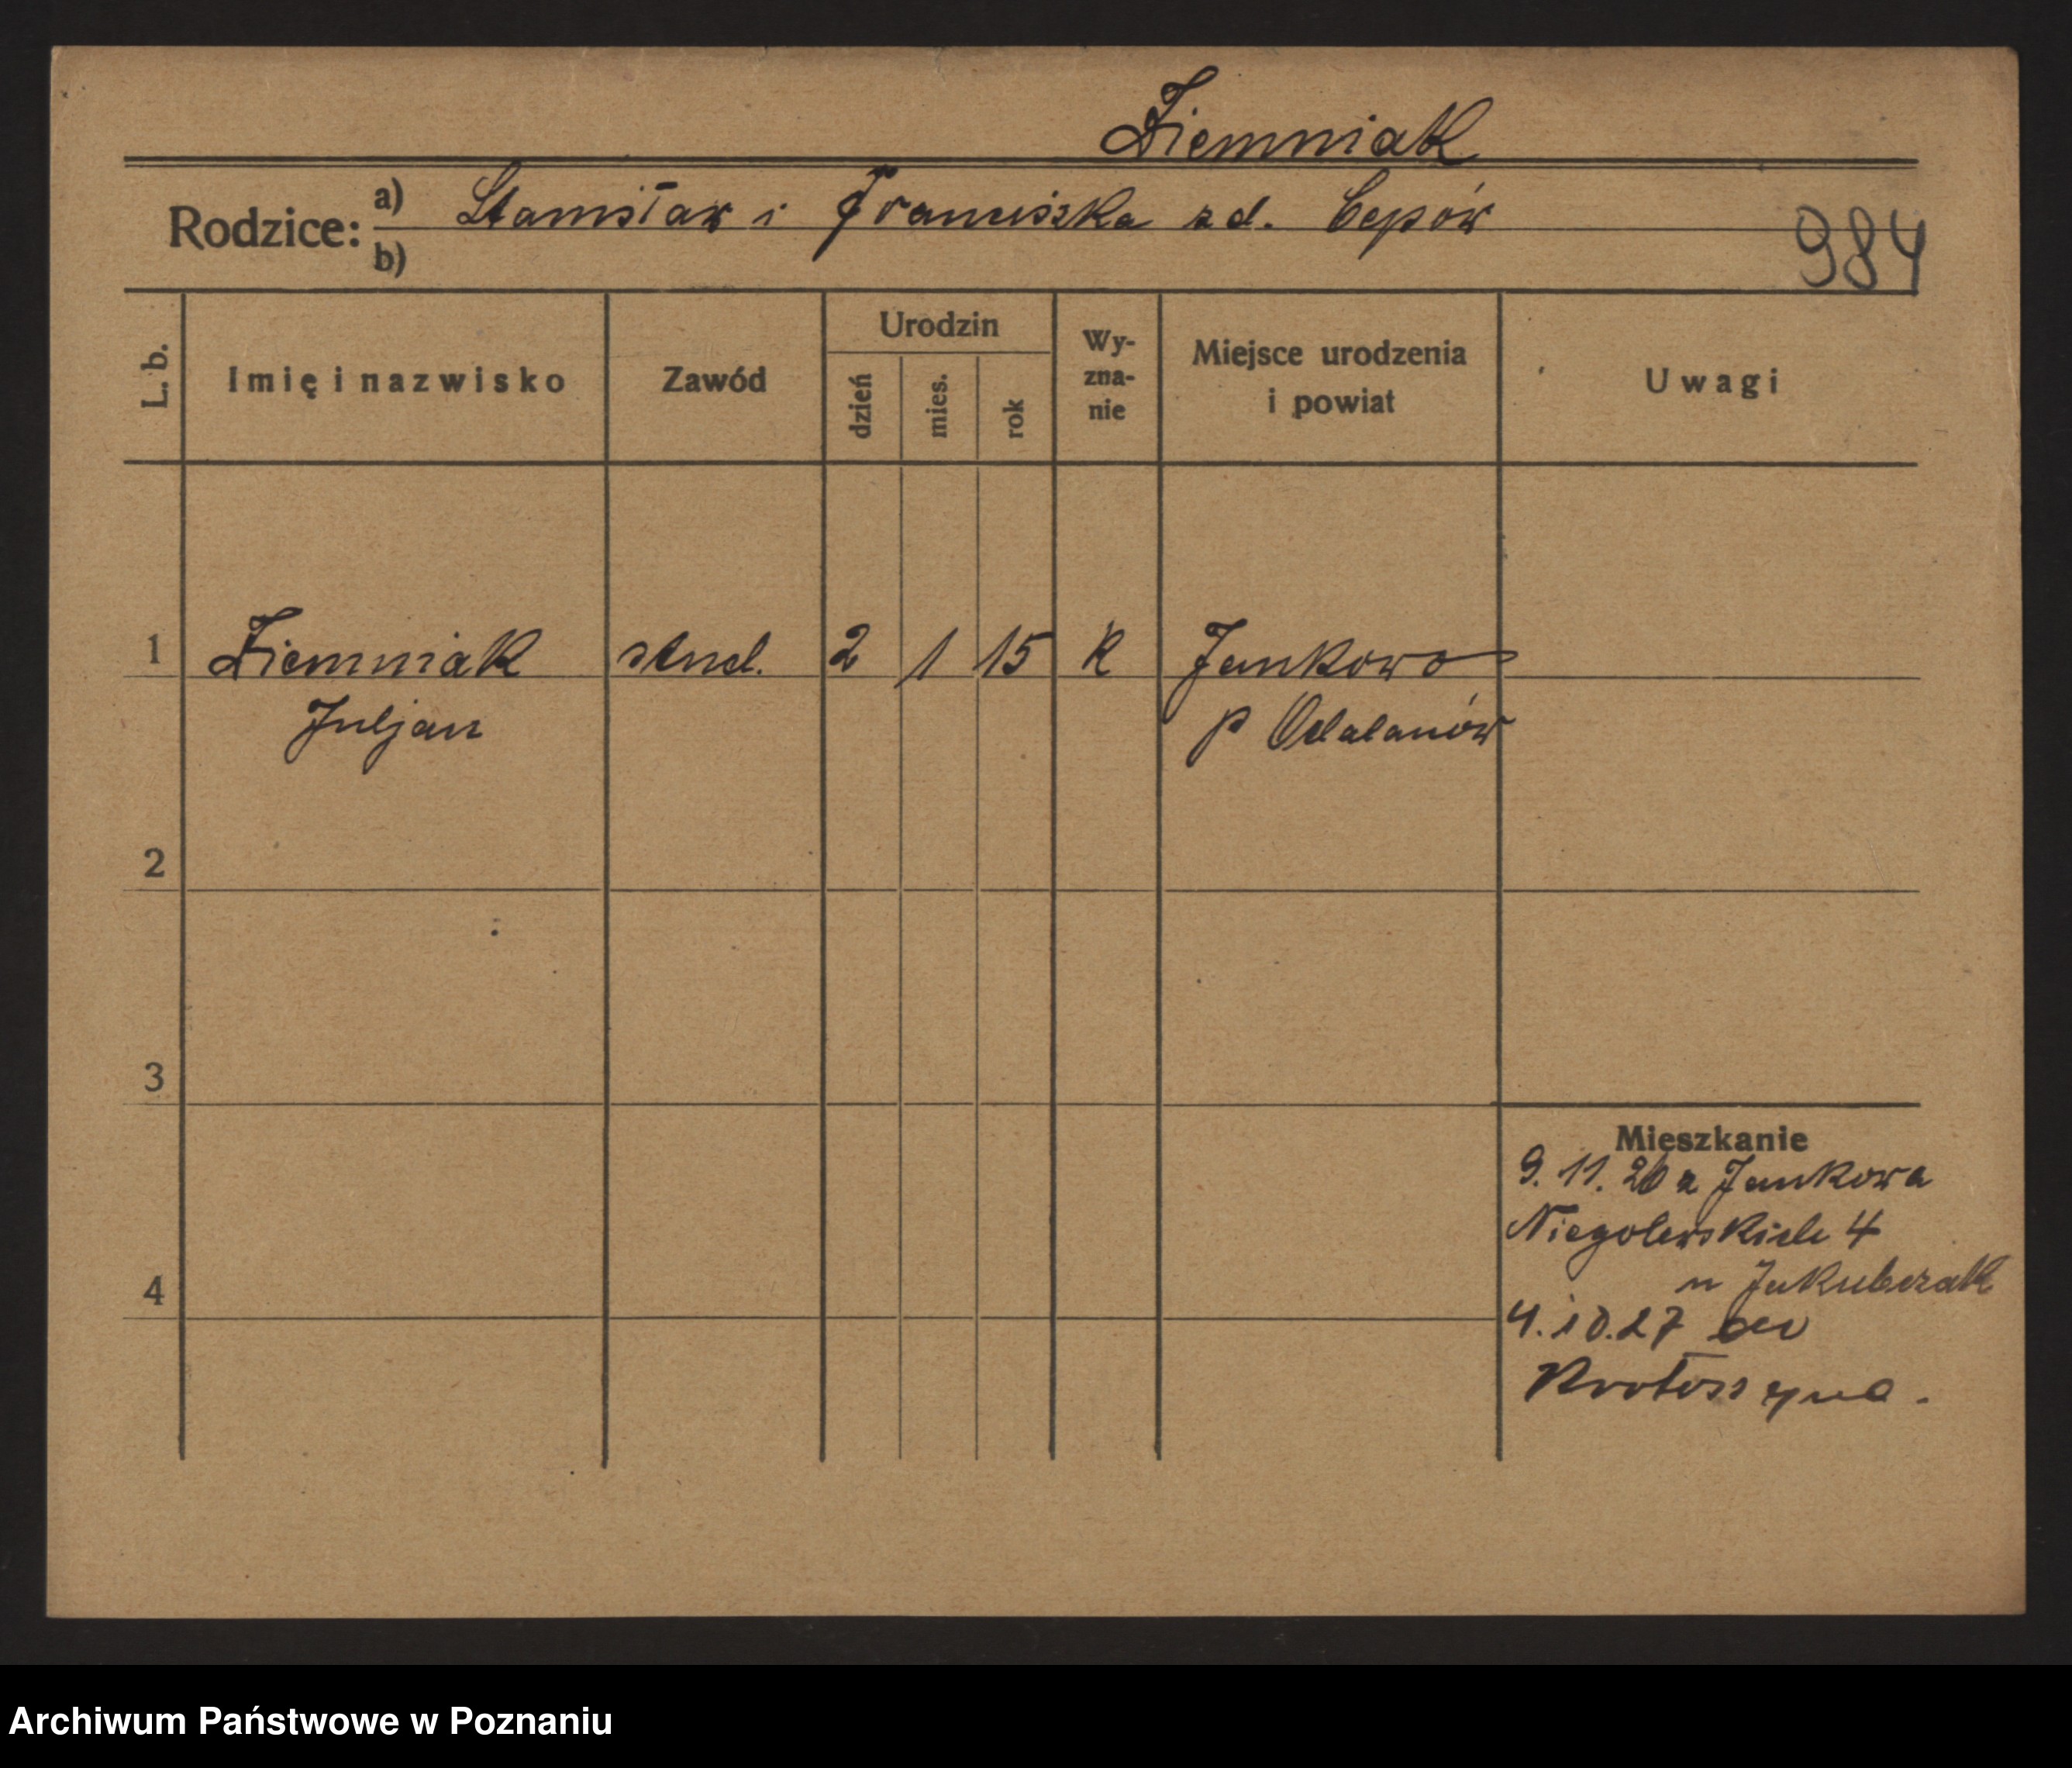 Ziemniak
Rodzice: a) Stanisław i Franciszka zd. Cepów
b)
984
L. b.
Imię i nazwisko
Zawód
Urodzin
dzień
mies.
rok
Wy-
zna-
nie
Miejsce urodzenia
i powiat
Uwagi
1 Ziemniak stud. 2 1 15 k Jankowo
Juljan p Odalanów
2
3
4
Mieszkanie
9. 11. 26 z Jankowa
Niegolewskich 4
u Jakubczak
4. 10. 27 do
Krotoszyna.
Archiwum Państwowe w Poznaniu